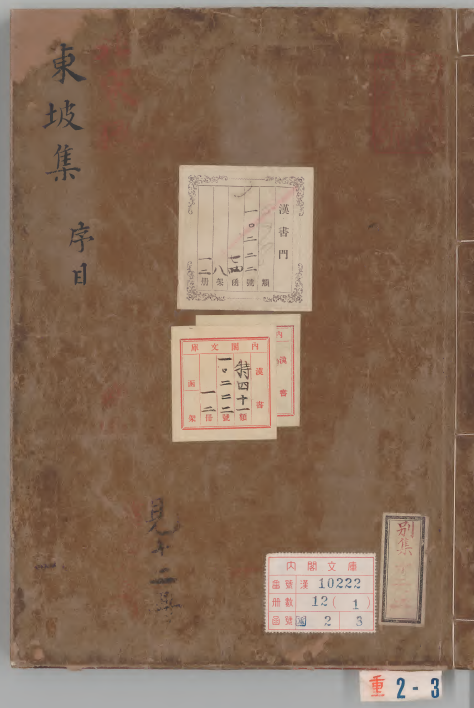 東坡集 序目
漢書門
類
一〇二二二號
函
八架
一二冊
漢書
內閣文庫
漢書
特四十一類
一〇二二二號
一二冊
函
架
別集
見十二冊
內閣文庫
番號 漢 10222
冊數 12 (1)
函號 2 3
重 2-3